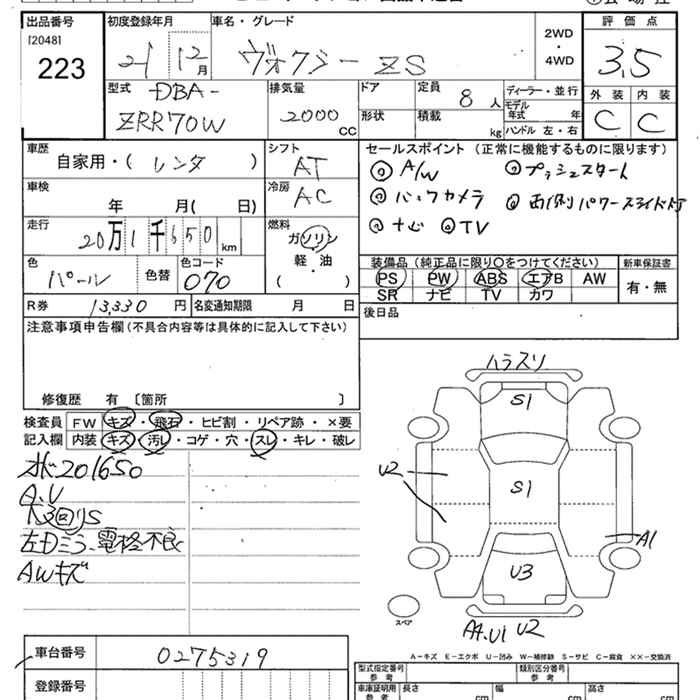 出品番号
[2048]
223
初度登録年月
21 12月
車名・グレード
ヴォクシー ZS
2WD
・
4WD
評価点
3.5
型式
DBA-
ZRR70W
排気量
2000
CC
ドア
形状
定員
8 人
積載
kg
ディーラー・並行
モデル年式 年
ハンドル 左・右
外装 内装
C C
車歴
自家用・( レンタ )
シフト
AT
セールスポイント (正常に機能するものに限ります)
◎ A/W ◎ プッシュスタート
◎ バックカメラ ◎ 両側パワースライドドア
◎ ナビ ◎ TV
車検
年 月( 日)
冷房
AC
走行
20万1千650 km
燃料
ガソリン
軽・油
( )
色
パール
色替
色コード
070
装備品 (純正品に限り○をつけてください)
PS PW ABS エアB AW
SR ナビ TV カワ
新車保証書
有・無
R券 13,330 円
名変通知期限 月 日
後日品
注意事項申告欄 (不具合内容等は具体的に記入して下さい)
修復歴 有 〔箇所 〕
検査員
記入欄
FW キズ・飛石・ヒビ割・リペア跡・×要
内装 キズ・汚レ・コゲ・穴・スレ・キレ・破レ
201650
A.U
左Dミラ 電格不良
AWキズ
ハラスリ
S1
U2
S1
A1
U3
A4.U1 U2
スペア
A−キズ E−エクボ U−凹み W−補修跡 S−サビ C−腐食 ××−交換済
車台番号
0275319
登録番号
型式指定番号
参考
類別区分番号
参考
車庫証明用
参考
長さ
cm
幅
cm
高さ
cm